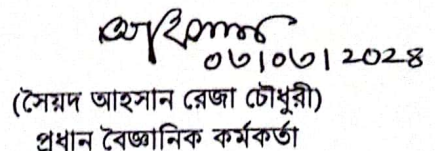 ০৬|০৬|২০২৪
(সৈয়দ আহসান রেজা চৌধুরী)
প্রধান বৈজ্ঞানিক কর্মকর্তা